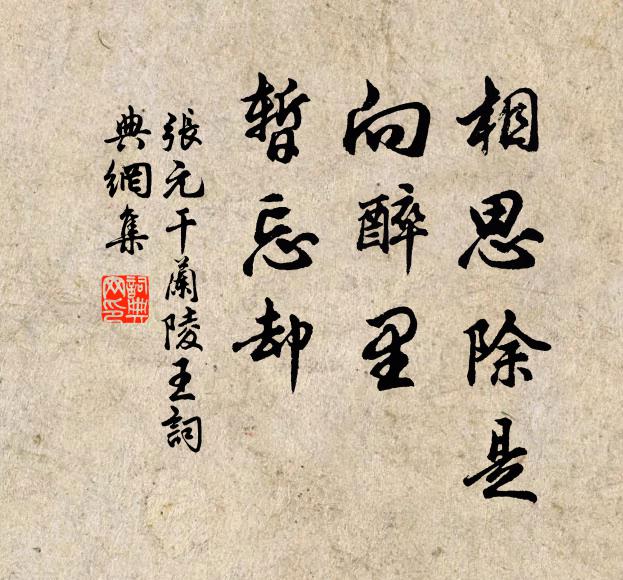 相思除是
向醉里
暫忘却
張元干蘭陵王詞
典網集
詞典
网印